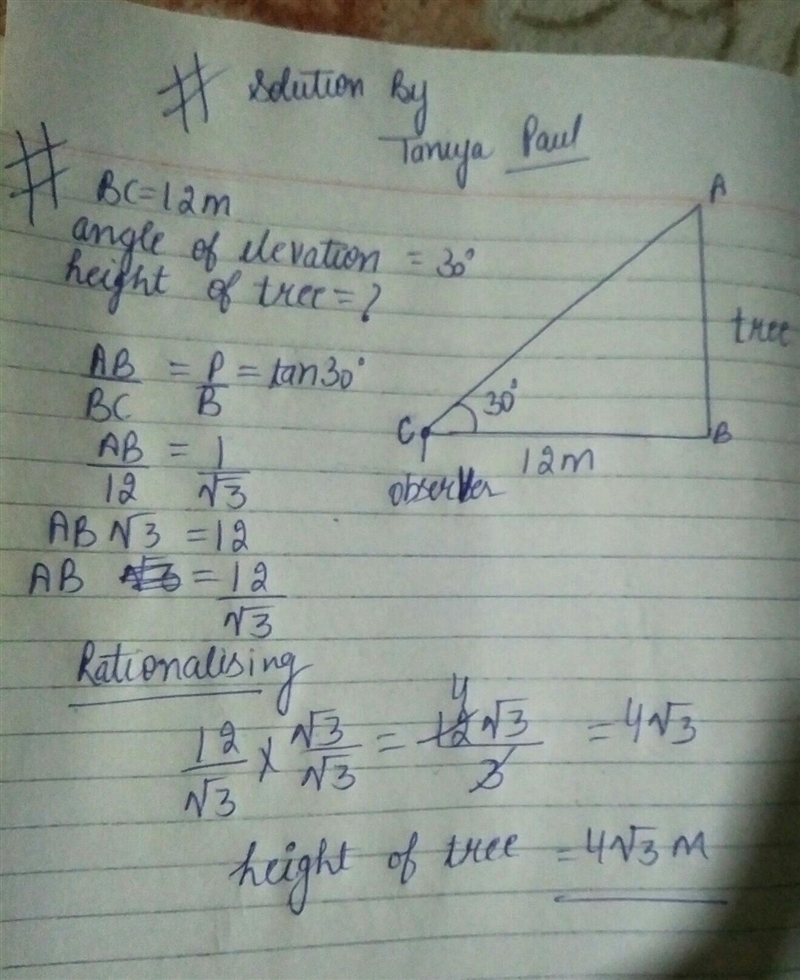 # Solution By
Tanuya Paul
# BC=12m
angle of elevation = 30°
height of tree=?
AB/BC = P/B = tan30°
AB/12 = 1/√3
AB √3 = 12
AB √3 = 12/√3
Rationalising
12/√3 × √3/√3 = 4 12√3/3 = 4√3
height of tree = 4√3 m
A
tree
30°
C
B
12m
observer